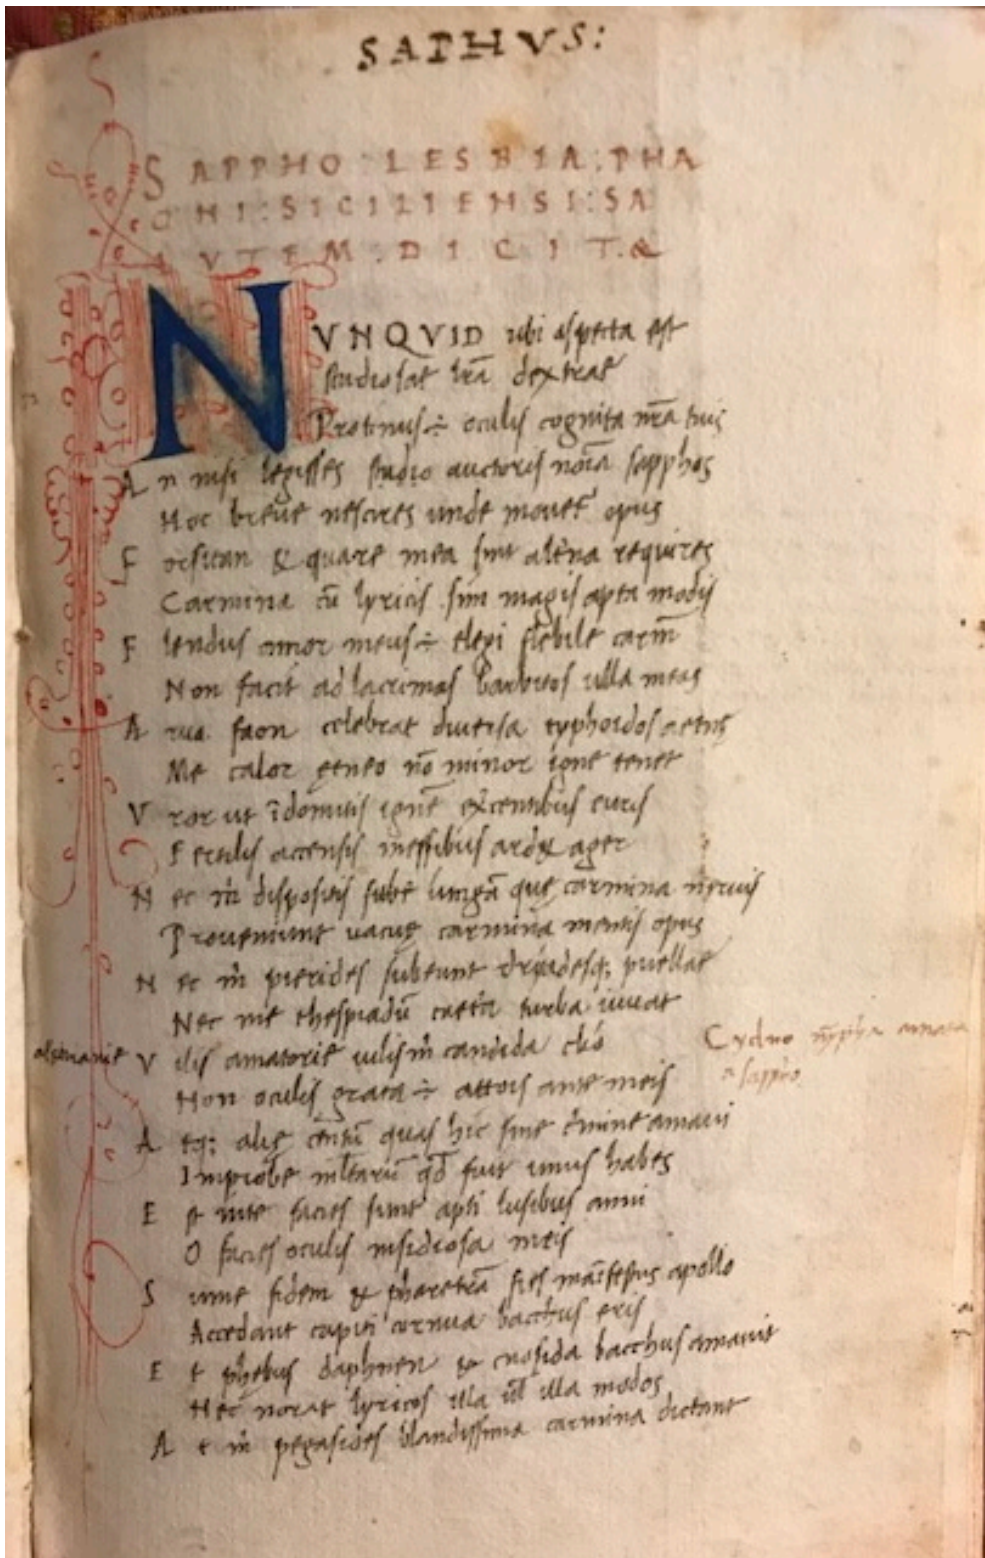 SAPHVS:
SAPPHO : LESBIA : PHA
ONI : SICILIENSI : SA
LVTEM : DICIT . &
NVNQVID ubi aspecta est
studiosae lr̃a dextrae
Protinus ÷ oculis cognita nr̃a tuis
An nisi legisses studio auctoris noĩa sapphos
Hoc breue nescires unde mouet² opus
Forsitan & quare mea sint aliena requires
Carmina cũ lyricis sim magis apta modis
Flendus amor meus ÷ elegi flebile carm̃
Non facit ad lacrimas barbitos ulla meas
Arua faon celebrat diuersa typhoidos aetnę
Me calor ętneo nõ minor igne tenet
Vror ut ĩdomitis ignẽ exercentibus euris
Fertilis accensis messibus ardet ager
Nec m̃ dispositis subeunt que carmina neruis
Proueniunt uacuę carmina mentis opus
Nec m̃ pierides subeunt dryadesq; puellae
Nec me thespiadũ caetera turba iuuat
Vilis amatorie uilis m̃ candida
Non oculis grata ÷ attois ante meis
Cydno nỹpha amata
a sappho
Atq; alię centũ quas hic sine crimine amaui
Improbe ml̃tarũ qd̃ fuit unus habes
Est inte facies sunt apti lusibus anni
O facies oculis insidiosa meis
Sume fidem & pharetrã fies mãifestus apollo
Accedant capiti cornua bacchus eris
Et phębus daphnen & cnosida bacchus amauit
Nec norat lyricos illa ul̃ illa modos
At m̃ pegasides blandissima carmina dictant